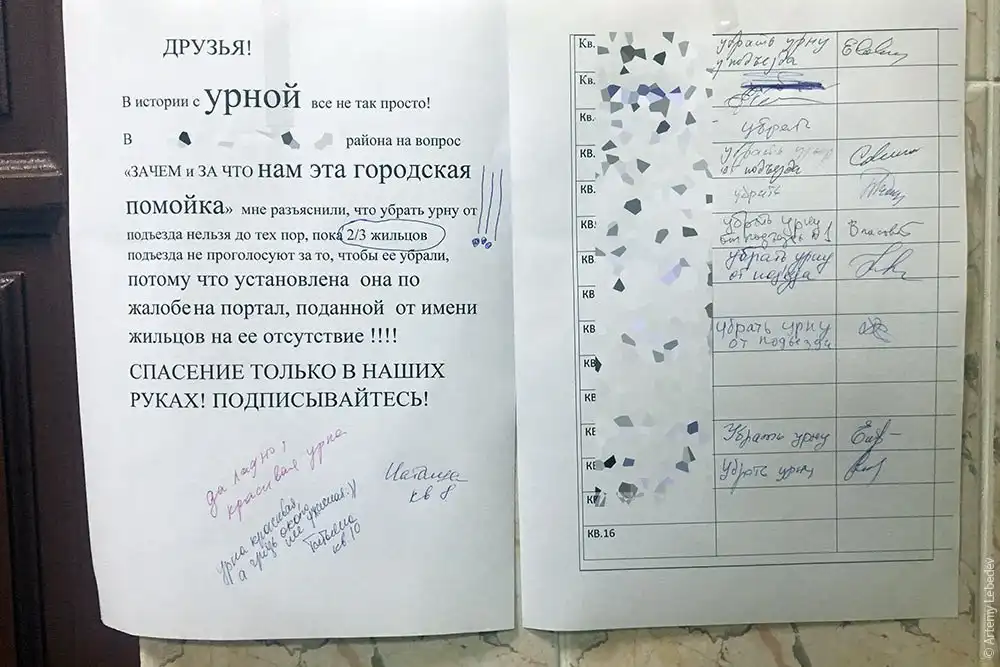 ДРУЗЬЯ!
В истории с урной все не так просто!
В района на вопрос
«ЗАЧЕМ и ЗА ЧТО нам эта городская
помойка» мне разъяснили, что убрать урну от
подъезда нельзя до тех пор, пока 2/3 жильцов
подъезда не проголосуют за то, чтобы ее убрали,
потому что установлена она по
жалобе на портал, поданной от имени
жильцов на ее отсутствие !!!!
СПАСЕНИЕ ТОЛЬКО В НАШИХ
РУКАХ! ПОДПИСЫВАЙТЕСЬ!
!!!
да ладно!
красивая урна
Наталья
кв 8
урна красивая,
а грязь около
нее ужасная:))
Татьяна
кв 10
Кв. убрать урну
у подъезда
Кв.
Кв. убрать
КВ. убрать урну
от подъезда
КВ. убрать
КВ убрать урну
от подъезда №1
КВ. убрать урну
от подъезда
КВ
КВ убрать урну
от подъезда
КВ
КВ
КВ Убрать урну
КВ Убрать урну
КВ
КВ.16
© Artemy Lebedev